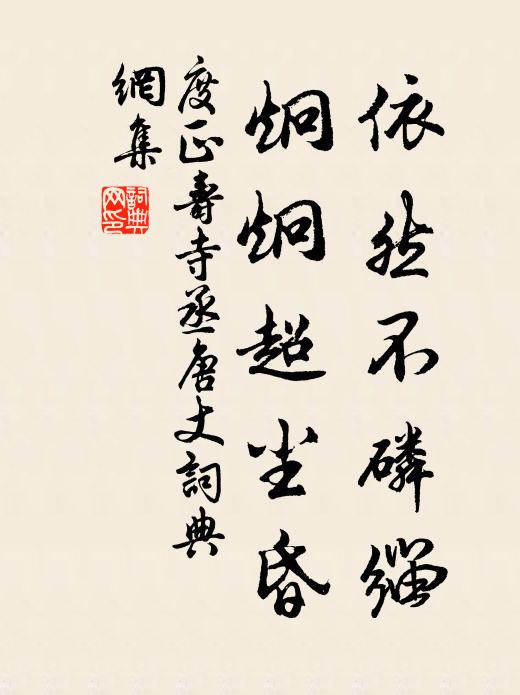 依然不磷缁
炯炯超尘昏
度正壽寺丞唐丈詞典
網集
詞典
网印